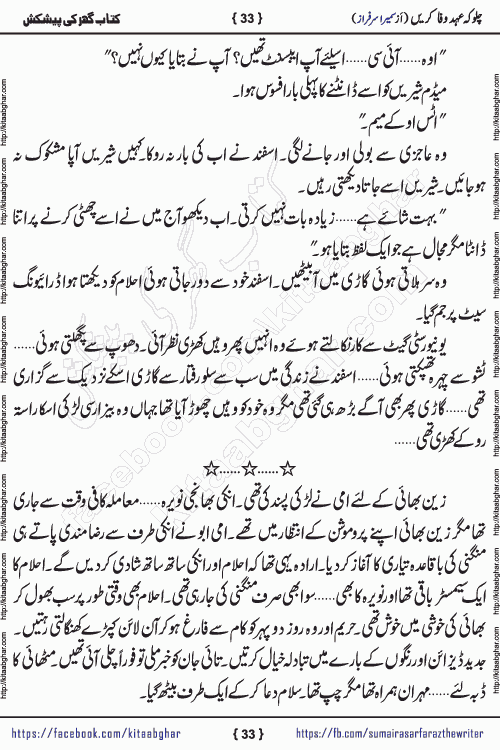 کتاب گھر کی پیشکش { 33 } چلو کہ عہد وفا کریں (از سمیرا سرفراز)
"اوہ......آئی سی......اسلیئے آپ ایبسنٹ تھیں؟ آپ نے بتایا کیوں نہیں؟"
میڈم شیریں کو اسے ڈانٹنے کا پہلی بار افسوس ہوا۔
"اٹس اوکے میم۔"
وہ عاجزی سے بولی اور جانے لگی۔ اسفند نے اب کی بار نہ روکا۔ کہیں شیریں آپا مشکوک نہ
ہو جائیں۔ شیریں اسے جاتا دیکھتی رہیں۔
"بہت شائے ہے......زیادہ بات نہیں کرتی۔ اب دیکھو آج میں نے اسے چھٹی کرنے پر اتنا
ڈانٹا مگر مجال ہے جو ایک لفظ بتایا ہو۔"
وہ سر ہلاتی ہوئی گاڑی میں آ بیٹھیں۔ اسفند خود سے دور جاتی ہوئی احلام کو دیکھتا ہوا ڈرائیونگ
سیٹ پر جم گیا۔
یونیورسٹی گیٹ سے کار نکالتے ہوئے وہ انہیں پھر وہیں کھڑی نظر آئی۔ دھوپ سے پگھلتی ہوئی......
ٹشو سے چہرہ تھپکتی ہوئی......اسفند نے زندگی میں سب سے سلو رفتار سے گاڑی اسکے نزدیک سے گزاری
تھی......گاڑی پھر بھی آگے بڑھ ہی گئی تھی مگر وہ خود کو وہیں چھوڑ آیا تھا جہاں وہ بیزار سی لڑکی اسکا راستہ
روکے کھڑی تھی......
☆......☆......☆
زین بھائی کے لئے امی نے لڑکی پسند کی تھی۔ انکی بھانجی نویرہ......معاملہ کافی وقت سے جاری
تھا مگر زین بھائی اپنے پروموشن کے انتظار میں تھے۔ امی ابو نے انکی طرف سے رضامندی پاتے ہی
منگنی کی باقاعدہ تیاری کا آغاز کر دیا۔ ارادہ یہی تھا کہ احلام اور انکی ساتھ ساتھ شادی کر دیں گے۔ احلام کا
ایک سیمسٹر باقی تھا اور نویرہ کا بھی......سو ابھی صرف منگنی کی جا رہی تھی۔ احلام بھی وقتی طور پر سب بھول کر
بھائی کی خوشی میں خوش تھی۔ حریم اور وہ روز دوپہر کو کام سے فارغ ہو کر آن لائن کپڑے کھنگالتی رہتیں۔
جدید ڈیزائن اور رنگوں کے بارے میں تبادلہ خیال کرتیں۔ تائی جان کو خبر ملی تو فوراً چلی آئی تھیں۔ مٹھائی کا
ڈبہ لئے......مہران ہمراہ تھا مگر چپ تھا۔ سلام دعا کر کے ایک طرف بیٹھ گیا۔
https://facebook.com/kitaabghar { 33 } https://fb.com/sumairasarfarazthewriter
http://kitaabghar.com http://kitaabghar.com http://kitaabghar.com http://kitaabghar.com http://kitaabghar.com http://kitaabghar.com http://kitaabghar.com http://kitaabghar.com